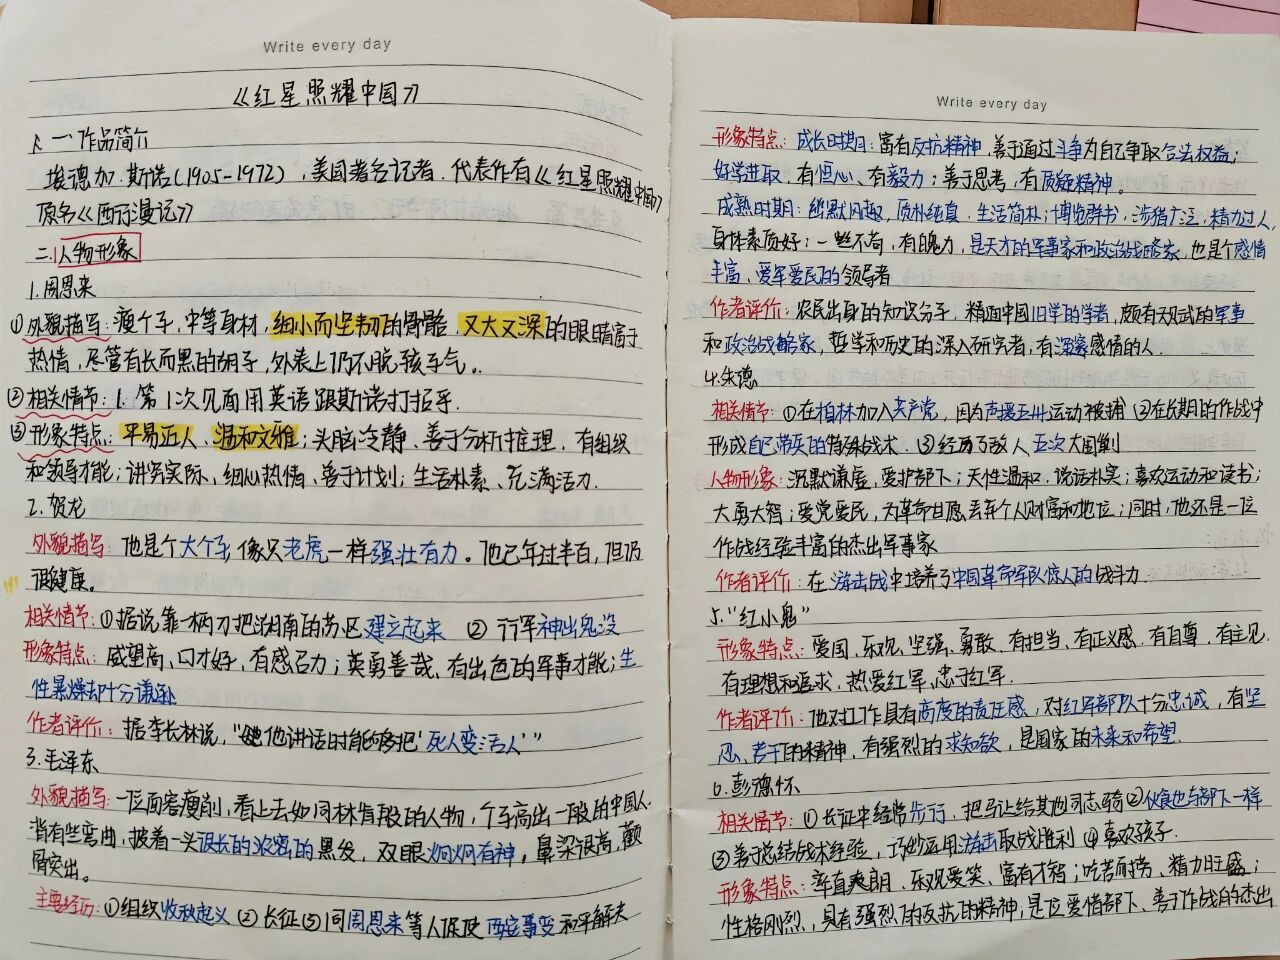 Write every day
《红星照耀中国》
一、作品简介
埃德加·斯诺(1905-1972),美国著名记者.代表作有《红星照耀中国》
原名《西行漫记》
二.人物形象
1.周恩来
①外貌描写:瘦个子,中等身材,细小而坚韧的骨骼,又大又深的眼睛富于
热情,尽管有长而黑的胡子,外表上仍不脱孩子气。
②相关情节:1.第1次见面用英语跟斯诺打招呼.
③形象特点:平易近人、温和文雅;头脑冷静、善于分析推理、有组织
和领导才能;讲究实际、细心热情、善于计划;生活朴素、充满活力.
2.贺龙
外貌描写:他是个大个子,像只老虎一样强壮有力。他已年过半百,但仍
很健康。
相关情节:①据说靠一柄刀把湖南的苏区建立起来 ②行军神出鬼没
形象特点:威望高、口才好、有感召力;英勇善战、有出色的军事才能;生
性暴燥却十分谦孙
作者评价:据李长林说,"他讲话时能够把'死人变活人'"
3.毛泽东
外貌描写:一位面容瘦削,看上去如同林肯般的人物,个子高出一般的中国人.
背有些弯曲,披着一头很长的浓密的黑发,双眼炯炯有神,鼻梁很高,颧
骨突出。
主要经历:①组织收秋起义②长征③同周恩来等人促使西安事变和平解决
Write every day
形象特点:成长时期:富有反抗精神,善于通过斗争为自己争取合法权益;
好学进取、有恒心、有毅力;善于思考,有质疑精神。
成熟时期:幽默风趣,质朴纯真,生活简朴;博览群书,涉猎广泛,精力过人,
身体素质好;一丝不苟,有魄力,是天才的军事家和政治战略家,也是个感情
丰富、爱军爱民的领导者
作者评价:农民出身的知识分子,精通中国旧学的学者,颇有天赋的军事
和政治战略家,哲学和历史的深入研究者,有深邃感情的人.
4.朱德
相关情节:①在柏林加入共产党,因为声援五卅运动被捕②在长期的作战中
形成自己带兵的特殊战术.③经历了敌人五次大围剿
人物形象:沉默谦虚,爱护部下;天性温和.说话朴实;喜欢运动和读书;
大勇大智;爱党爱民,为革命甘愿丢弃个人财富和地位;同时,他还是一位
作战经验丰富的杰出军事家
作者评价:在游击战中培养了中国革命军队惊人的战斗力
5."红小鬼"
形象特点:爱国、乐观、坚强、勇敢、有担当、有正义感、有自尊、有主见、
有理想和追求.热爱红军、忠于红军.
作者评价:他对工作具有高度的责任感,对红军部队十分忠诚,有坚
忍、苦干的精神,有强烈的求知欲,是国家的未来和希望.
6.彭德怀
相关情节:①长征中经常步行,把马让给其他同志骑②伙食也与部下一样
③善于总结战术经验,巧妙运用游击取战胜利④喜欢孩子.
形象特点:率直爽朗、乐观爱笑、富有才智;吃苦耐劳、精力旺盛;
性格刚烈,具有强烈的反抗的精神,是位爱惜部下、善于作战的杰出